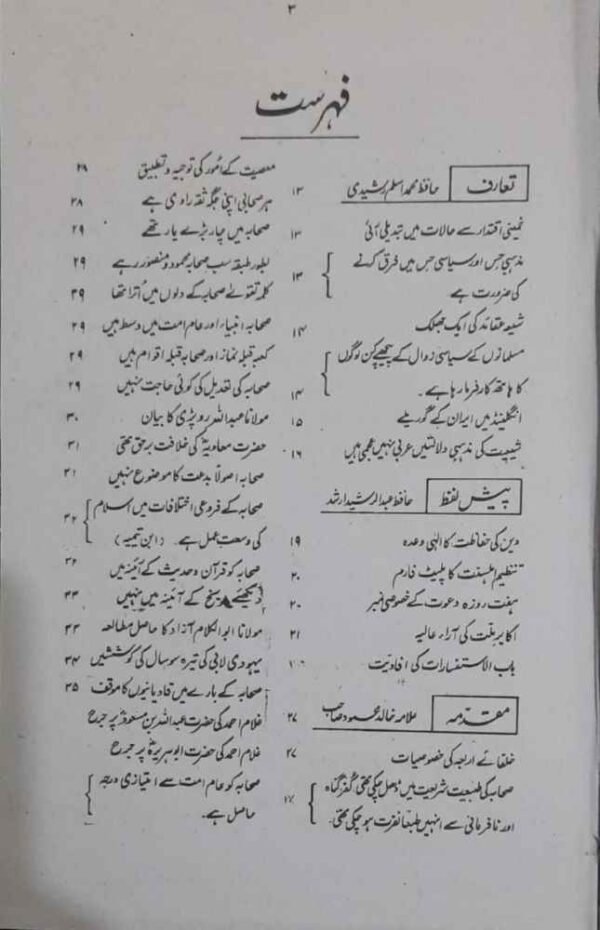 ۳
فہرست
تعارف حافظ محمد اسلم رشیدی ۱۳
خمینی اقتدار سے حالات میں تبدیلی آئی ۱۳
مذہبی حس اور سیاسی حس میں فرق کرنے
کی ضرورت ہے ۱۳
شیعہ عقائد کی ایک جھلک ۱۴
مسلمانوں کے سیاسی زوال کے پیچھے کن لوگوں
کا ہاتھ کار فرما رہا ہے۔ ۱۴
انگلینڈ میں ایران کے گوریلے ۱۵
شیعیت کی مذہبی دلالتیں عربی نہیں عجمی ہیں ۱۶
پیش لفظ حافظ عبدالرشید ارشد
دین کی حفاظت کا الٰہی وعدہ ۱۹
تنظیم اہلسنت کا پلیٹ فارم ۲۰
ہفت روزہ دعوت کے خصوصی نمبر ۲۰
اکابر ملت کی آراء عالیہ ۲۱
باب الاستفسارات کی افادیت
مقدمہ علامہ خالد محمود صاحب ۲۷
خلفائے اربعہ کی خصوصیات ۲۷
صحابہ کی طبیعت شریعت میں ڈھل چکی تھی کفر گناہ
اور نافرمانی سے انہیں طبعا نفرت ہو چکی تھی۔
معصیت کے امور کی توجیہ و تطبیق ۲۸
ہر صحابی اپنی جگہ ثقہ راوی ہے ۲۸
صحابہ میں چار بڑے یار تھے ۲۹
بطور طبقہ سب صحابہ محمود و منصور رہے ۲۹
کلمہ تقوےٰ صحابہ کے دلوں میں اترا تھا ۲۹
صحابہ انبیاء اور عام امت میں وسط ہیں ۲۹
کعبہ قبلہ نماز اور صحابہ قبلہ اقوام ہیں ۲۹
صحابہ کی تعدیل کی کوئی حاجت نہیں ۲۹
مولانا عبداللہ روپڑی کا بیان ۳۰
حضرت معاویہؓ کی خلافت برحق تھی ۳۱
صحابہ اصولاً بدعت کا موضوع نہیں ۳۱
صحابہ کے فروعی اختلافات میں اسلام
کی وسعت عمل ہے۔ (ابن تیمیہ) ۳۲
صحابہ کو قرآن و حدیث کے آئینہ میں
دیکھئے تاریخ کے آئینہ میں نہیں ۳۳
مولانا ابوالکلام آزاد کا حاصل مطالعہ ۳۳
یہودی لابی کی تیرہ سو سال کی کوششیں ۳۴
صحابہ کے بارے میں قادیانیوں کا موقف ۳۵
غلام احمد کی حضرت عبداللہ بن مسعودؓ پر جرح
غلام احمد کی حضرت ابوہریرہؓ پر جرح
صحابہ کو عام امت سے امتیازی درجہ
حاصل ہے۔